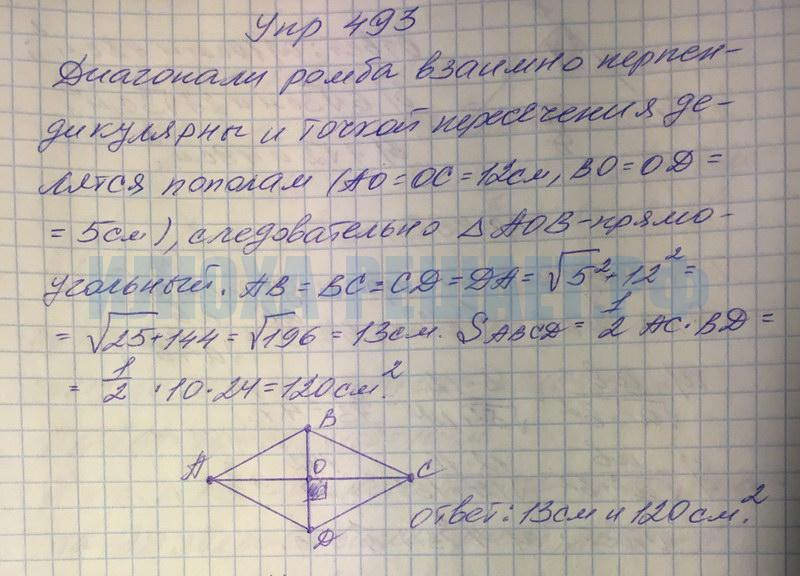 Упр 493
Диагонали ромба взаимно перпен-
дикулярны и точкой пересечения де-
лятся пополам (AO=OC=12см, BO=OD=
=5см), следовательно △AOB-прямо-
угольный. AB=BC=CD=DA=√5²+12²=
=√25+144=√196=13см. SABCD=1/2 AC·BD=
=1/2·10·24=120см².
B
A O C
D
ответ: 13см и 120см².
ИМОХА РЕШАЕТ.РФ